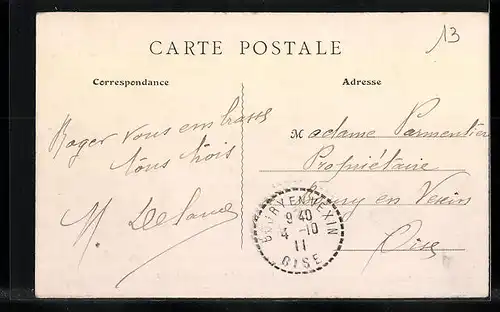 13
CARTE POSTALE
Correspondance
Adresse
Roger vous embrasse
tous trois
M. Delaune
Madame Parmentier
Propriétaire
Boury en Vexin
Oise
BOURY EN VEXIN
9 40
4 -10
11
OISE